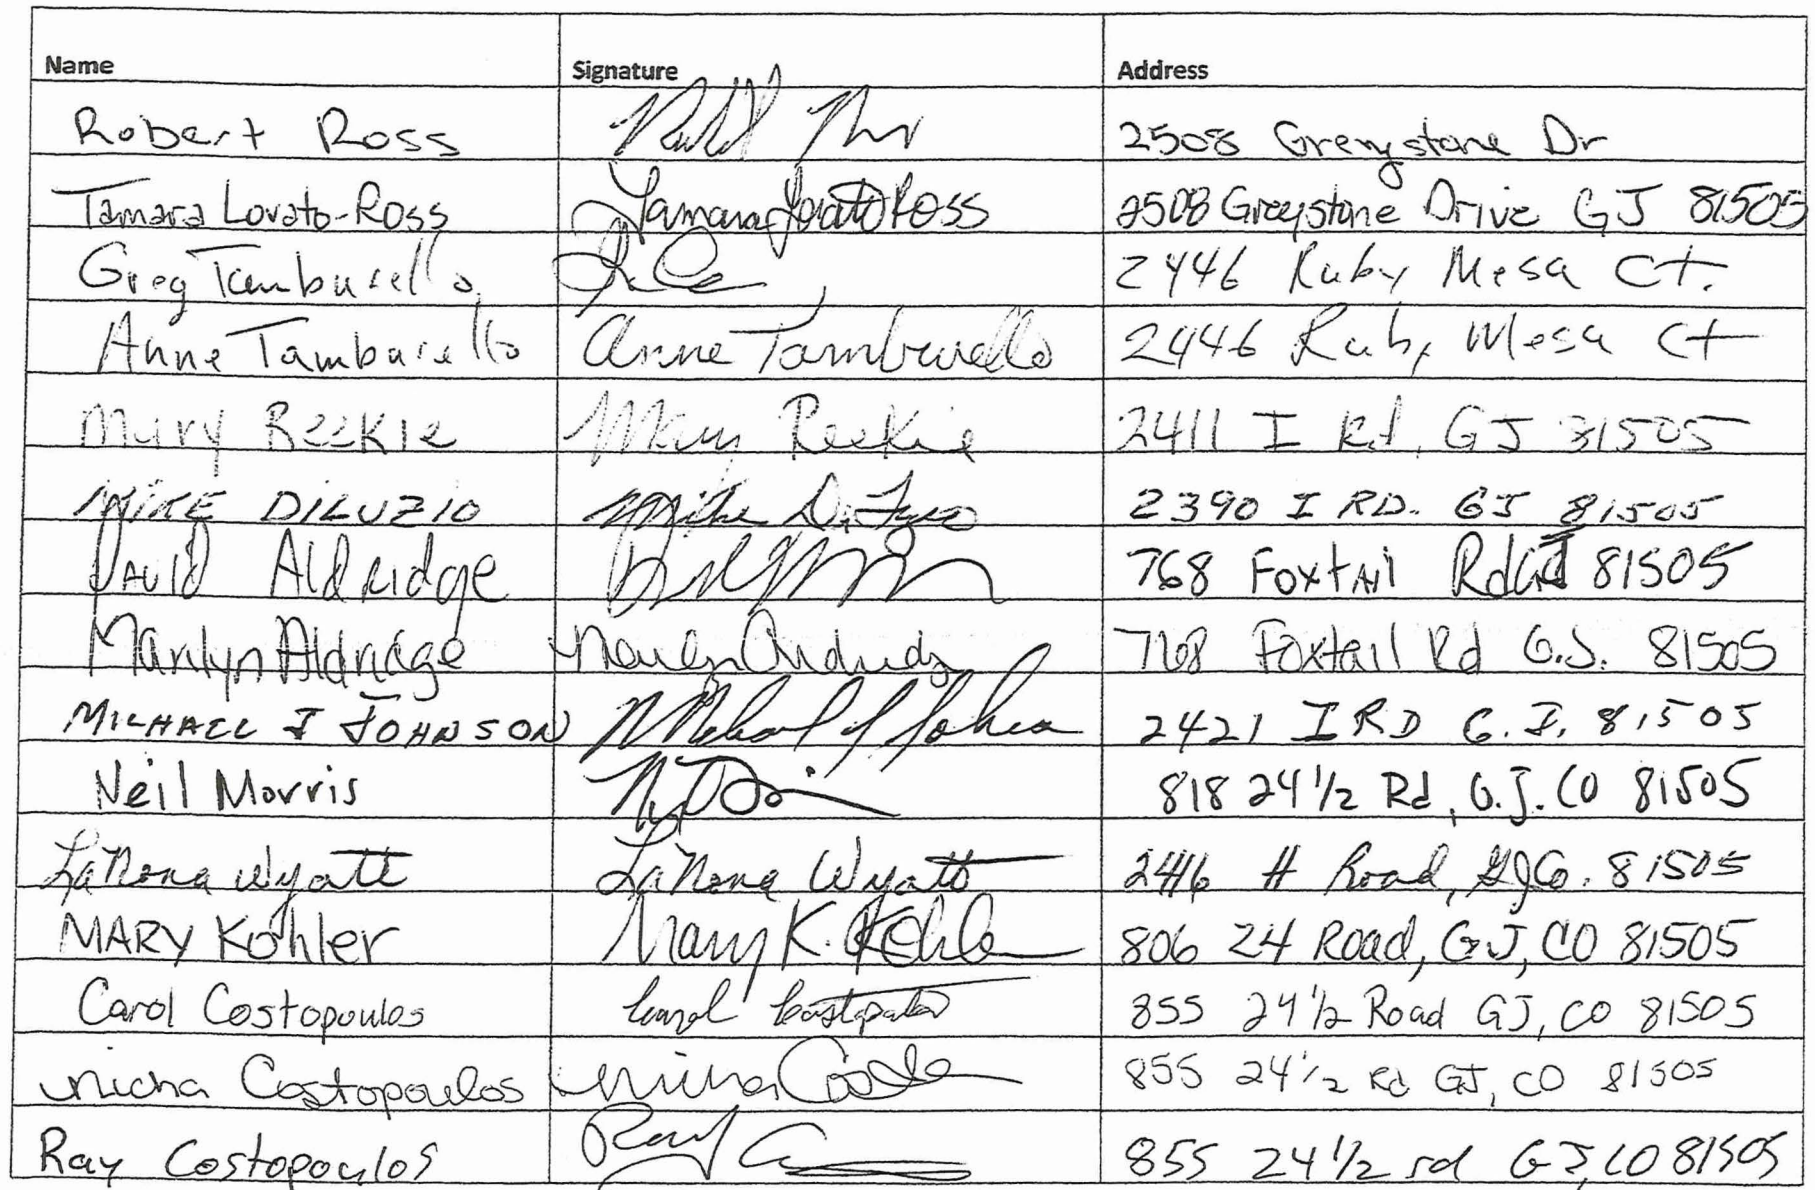 Name Signature Address
Robert Ross 2508 Greystone Dr
Tamara Lovato-Ross Tamara Lovato Ross 2508 Greystone Drive GJ 81505
Greg Tamburello 2446 Ruby Mesa Ct.
Anne Tamburello Anne Tamburello 2446 Ruby Mesa Ct
Mary Beekie Mary Reekie 2411 I Rd, GJ 81505
MIKE DILUZIO Mike 2390 I RD. GJ 81505
DAVID Aldridge 768 Foxtail Rd GJ 81505
Marilyn Aldridge 768 Foxtail Rd G.J. 81505
MICHAEL J JOHNSON Michael J Johnson 2421 I RD G.J. 81505
Neil Morris 818 24 1/2 Rd, G.J. CO 81505
LaNona Wyatt LaNona Wyatt 2416 H Road, GJ Co. 81505
MARY Kohler Mary K. Kohler 806 24 Road, GJ, CO 81505
Carol Costopoulos Carol Costopoulos 855 24 1/2 Road GJ, CO 81505
Micha Costopoulos Micha 855 24 1/2 Rd GJ, CO 81505
Ray Costopoulos Ray 855 24 1/2 rd GJ, CO 81505